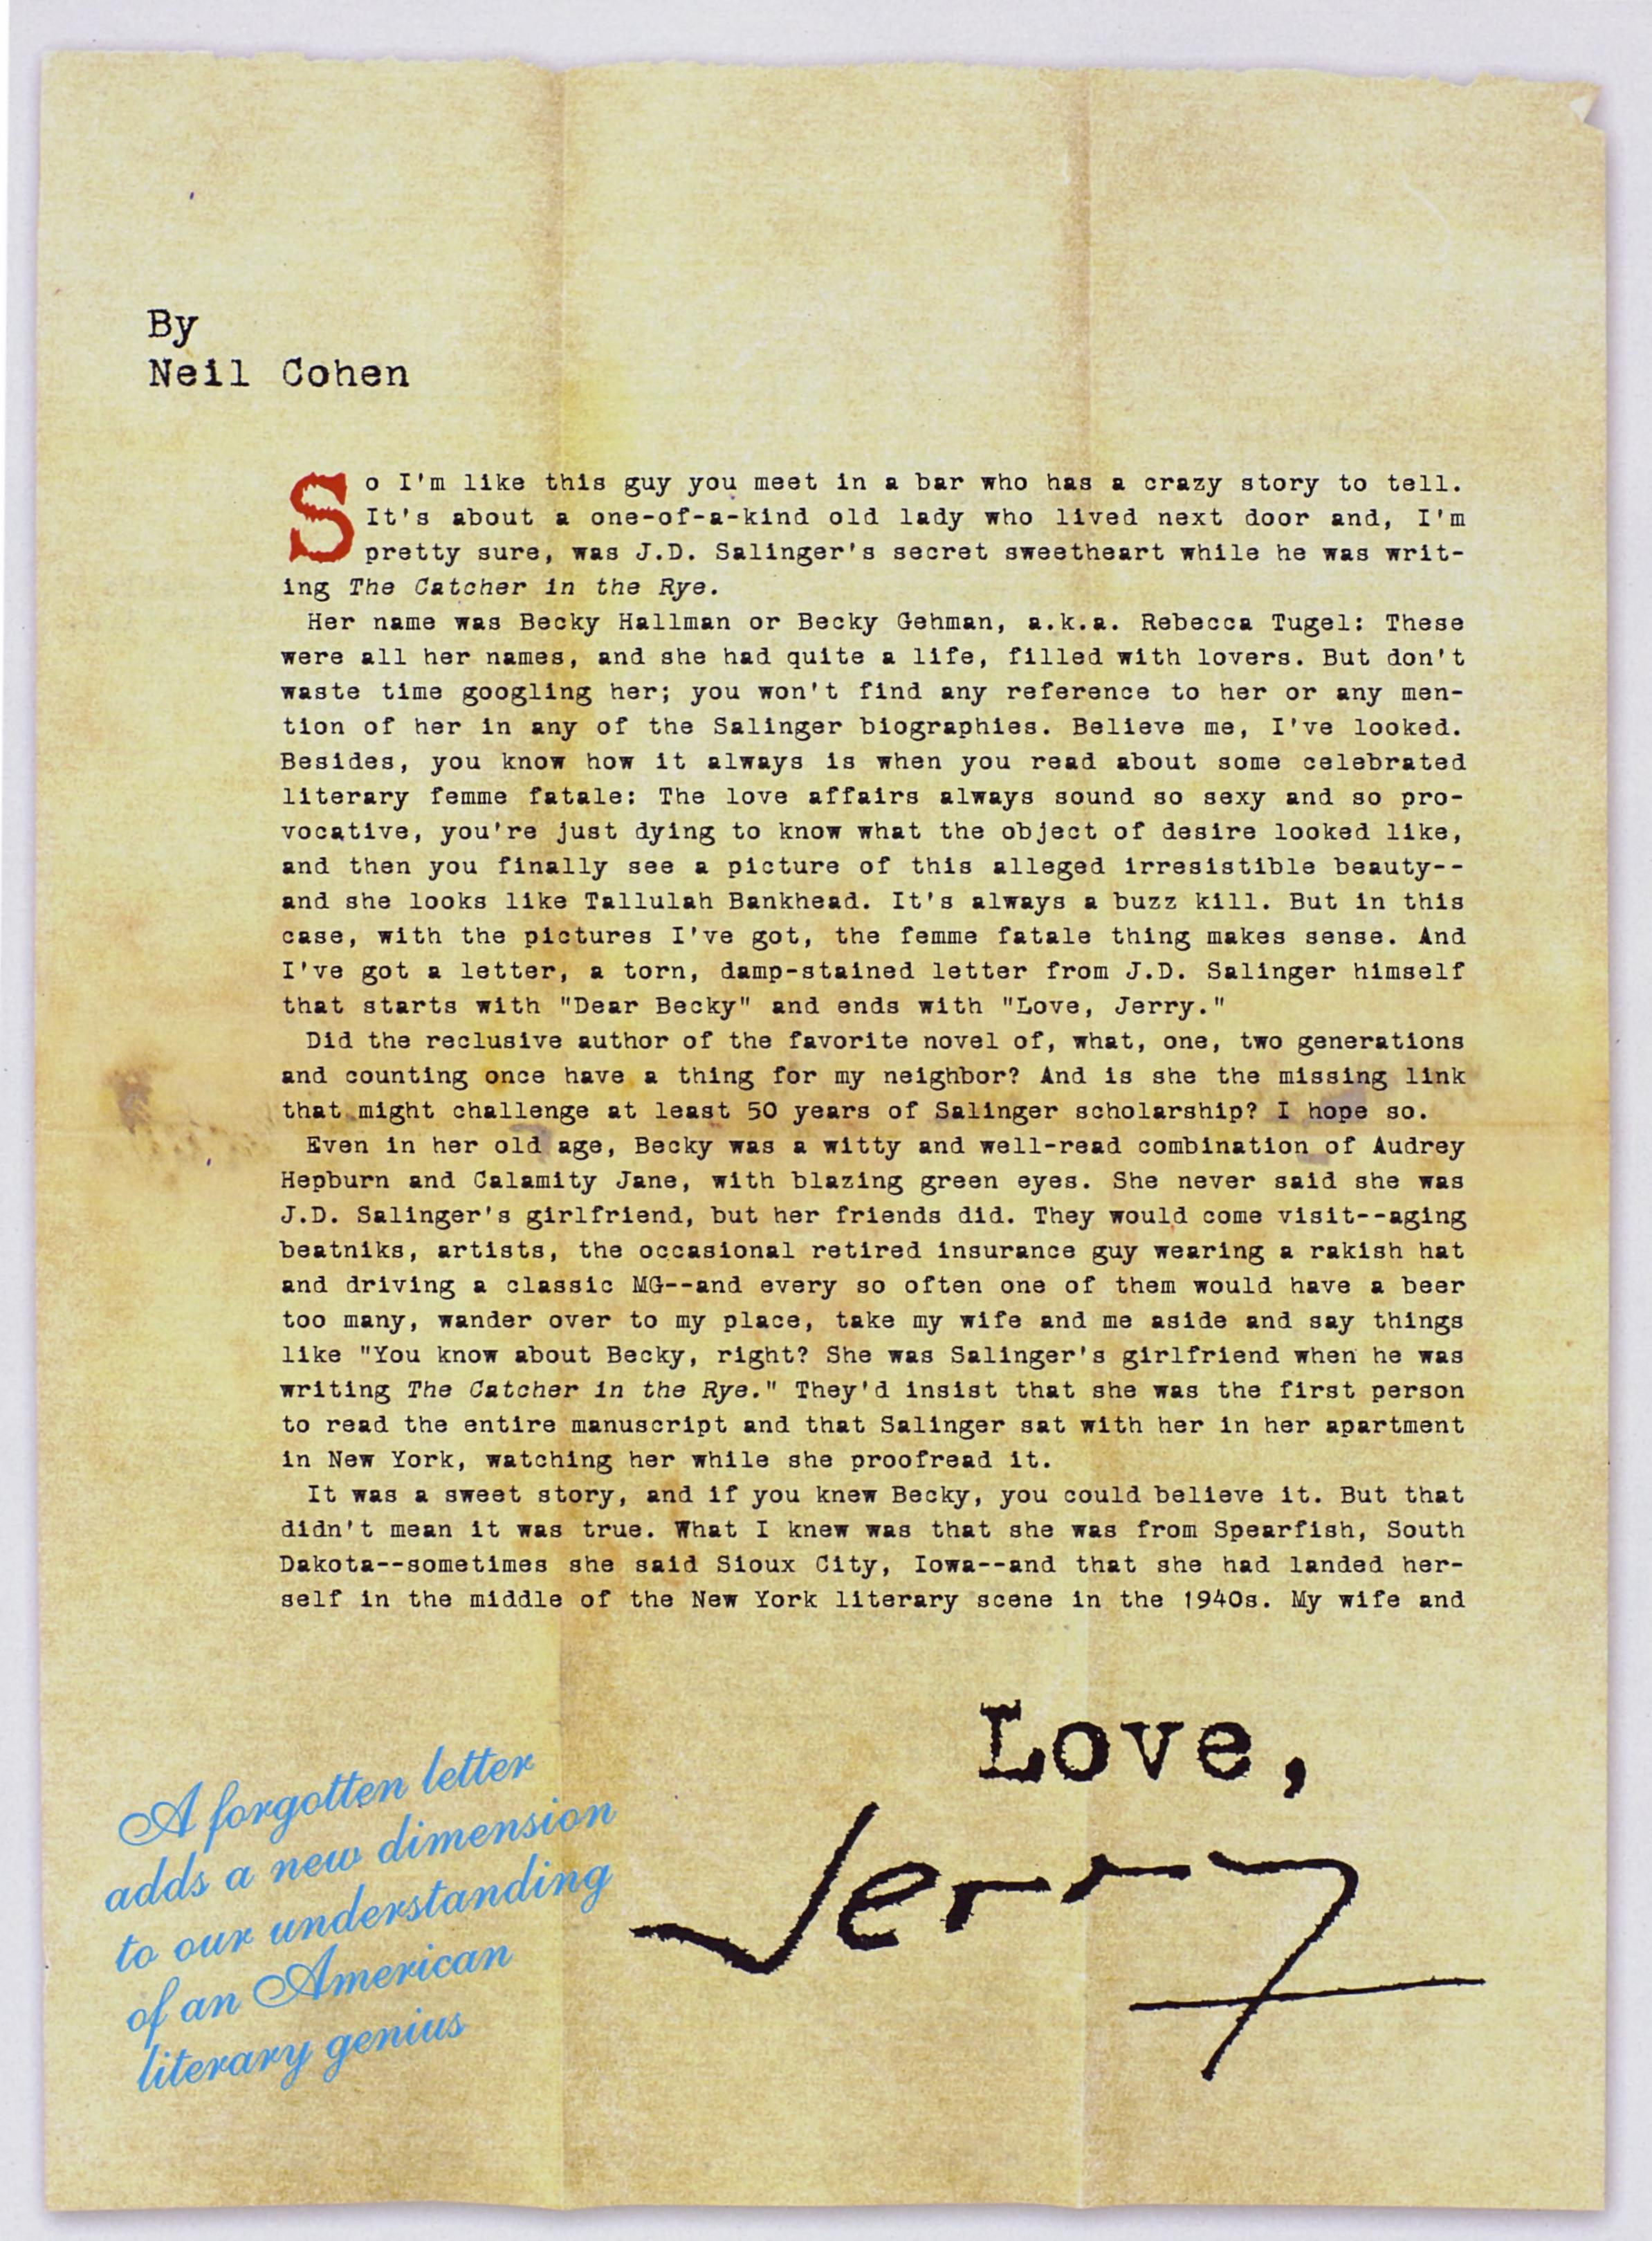 By
Neil Cohen
So I'm like this guy you meet in a bar who has a crazy story to tell.
It's about a one-of-a-kind old lady who lived next door and, I'm
pretty sure, was J.D. Salinger's secret sweetheart while he was writ-
ing The Catcher in the Rye.
Her name was Becky Hallman or Becky Gehman, a.k.a. Rebecca Tugel: These
were all her names, and she had quite a life, filled with lovers. But don't
waste time googling her; you won't find any reference to her or any men-
tion of her in any of the Salinger biographies. Believe me, I've looked.
Besides, you know how it always is when you read about some celebrated
literary femme fatale: The love affairs always sound so sexy and so pro-
vocative, you're just dying to know what the object of desire looked like,
and then you finally see a picture of this alleged irresistible beauty--
and she looks like Tallulah Bankhead. It's always a buzz kill. But in this
case, with the pictures I've got, the femme fatale thing makes sense. And
I've got a letter, a torn, damp-stained letter from J.D. Salinger himself
that starts with "Dear Becky" and ends with "Love, Jerry."
Did the reclusive author of the favorite novel of, what, one, two generations
and counting once have a thing for my neighbor? And is she the missing link
that might challenge at least 50 years of Salinger scholarship? I hope so.
Even in her old age, Becky was a witty and well-read combination of Audrey
Hepburn and Calamity Jane, with blazing green eyes. She never said she was
J.D. Salinger's girlfriend, but her friends did. They would come visit--aging
beatniks, artists, the occasional retired insurance guy wearing a rakish hat
and driving a classic MG--and every so often one of them would have a beer
too many, wander over to my place, take my wife and me aside and say things
like "You know about Becky, right? She was Salinger's girlfriend when he was
writing The Catcher in the Rye." They'd insist that she was the first person
to read the entire manuscript and that Salinger sat with her in her apartment
in New York, watching her while she proofread it.
It was a sweet story, and if you knew Becky, you could believe it. But that
didn't mean it was true. What I knew was that she was from Spearfish, South
Dakota--sometimes she said Sioux City, Iowa--and that she had landed her-
self in the middle of the New York literary scene in the 1940s. My wife and
Love,
Jerry
A forgotten letter
adds a new dimension
to our understanding
of an American
literary genius